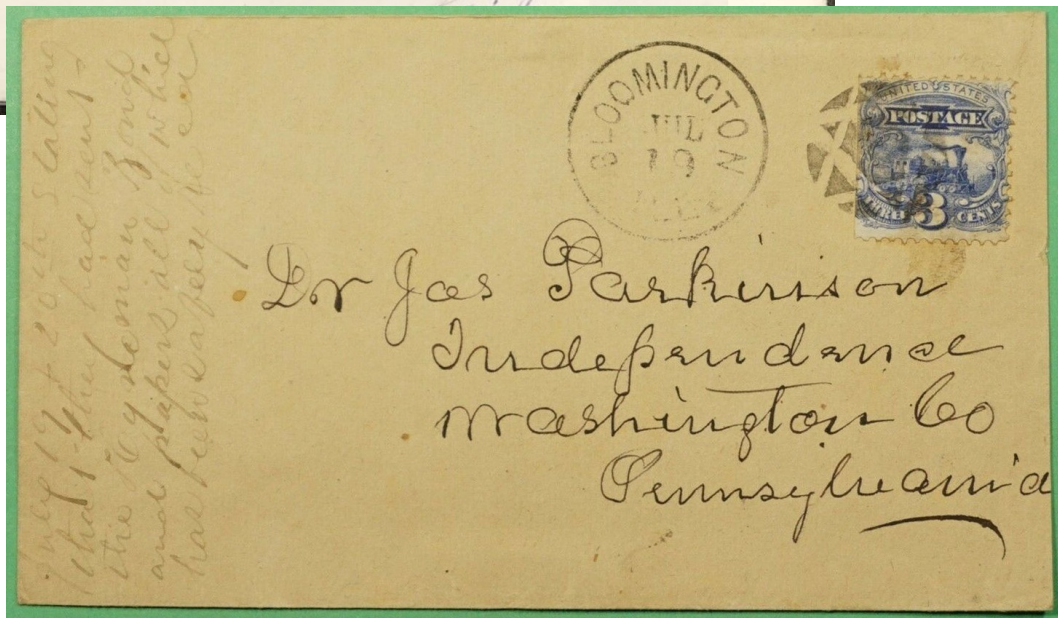 BLOOMINGTON
JUL
19
ILLS
UNITED STATES
POSTAGE
THREE 3 CENTS
Dr Jas Parkinson
Independence
Washington Co
Pennsylvania
July 19th 20th stating
what they had sent
the Bond
and papers all of which
has been safely